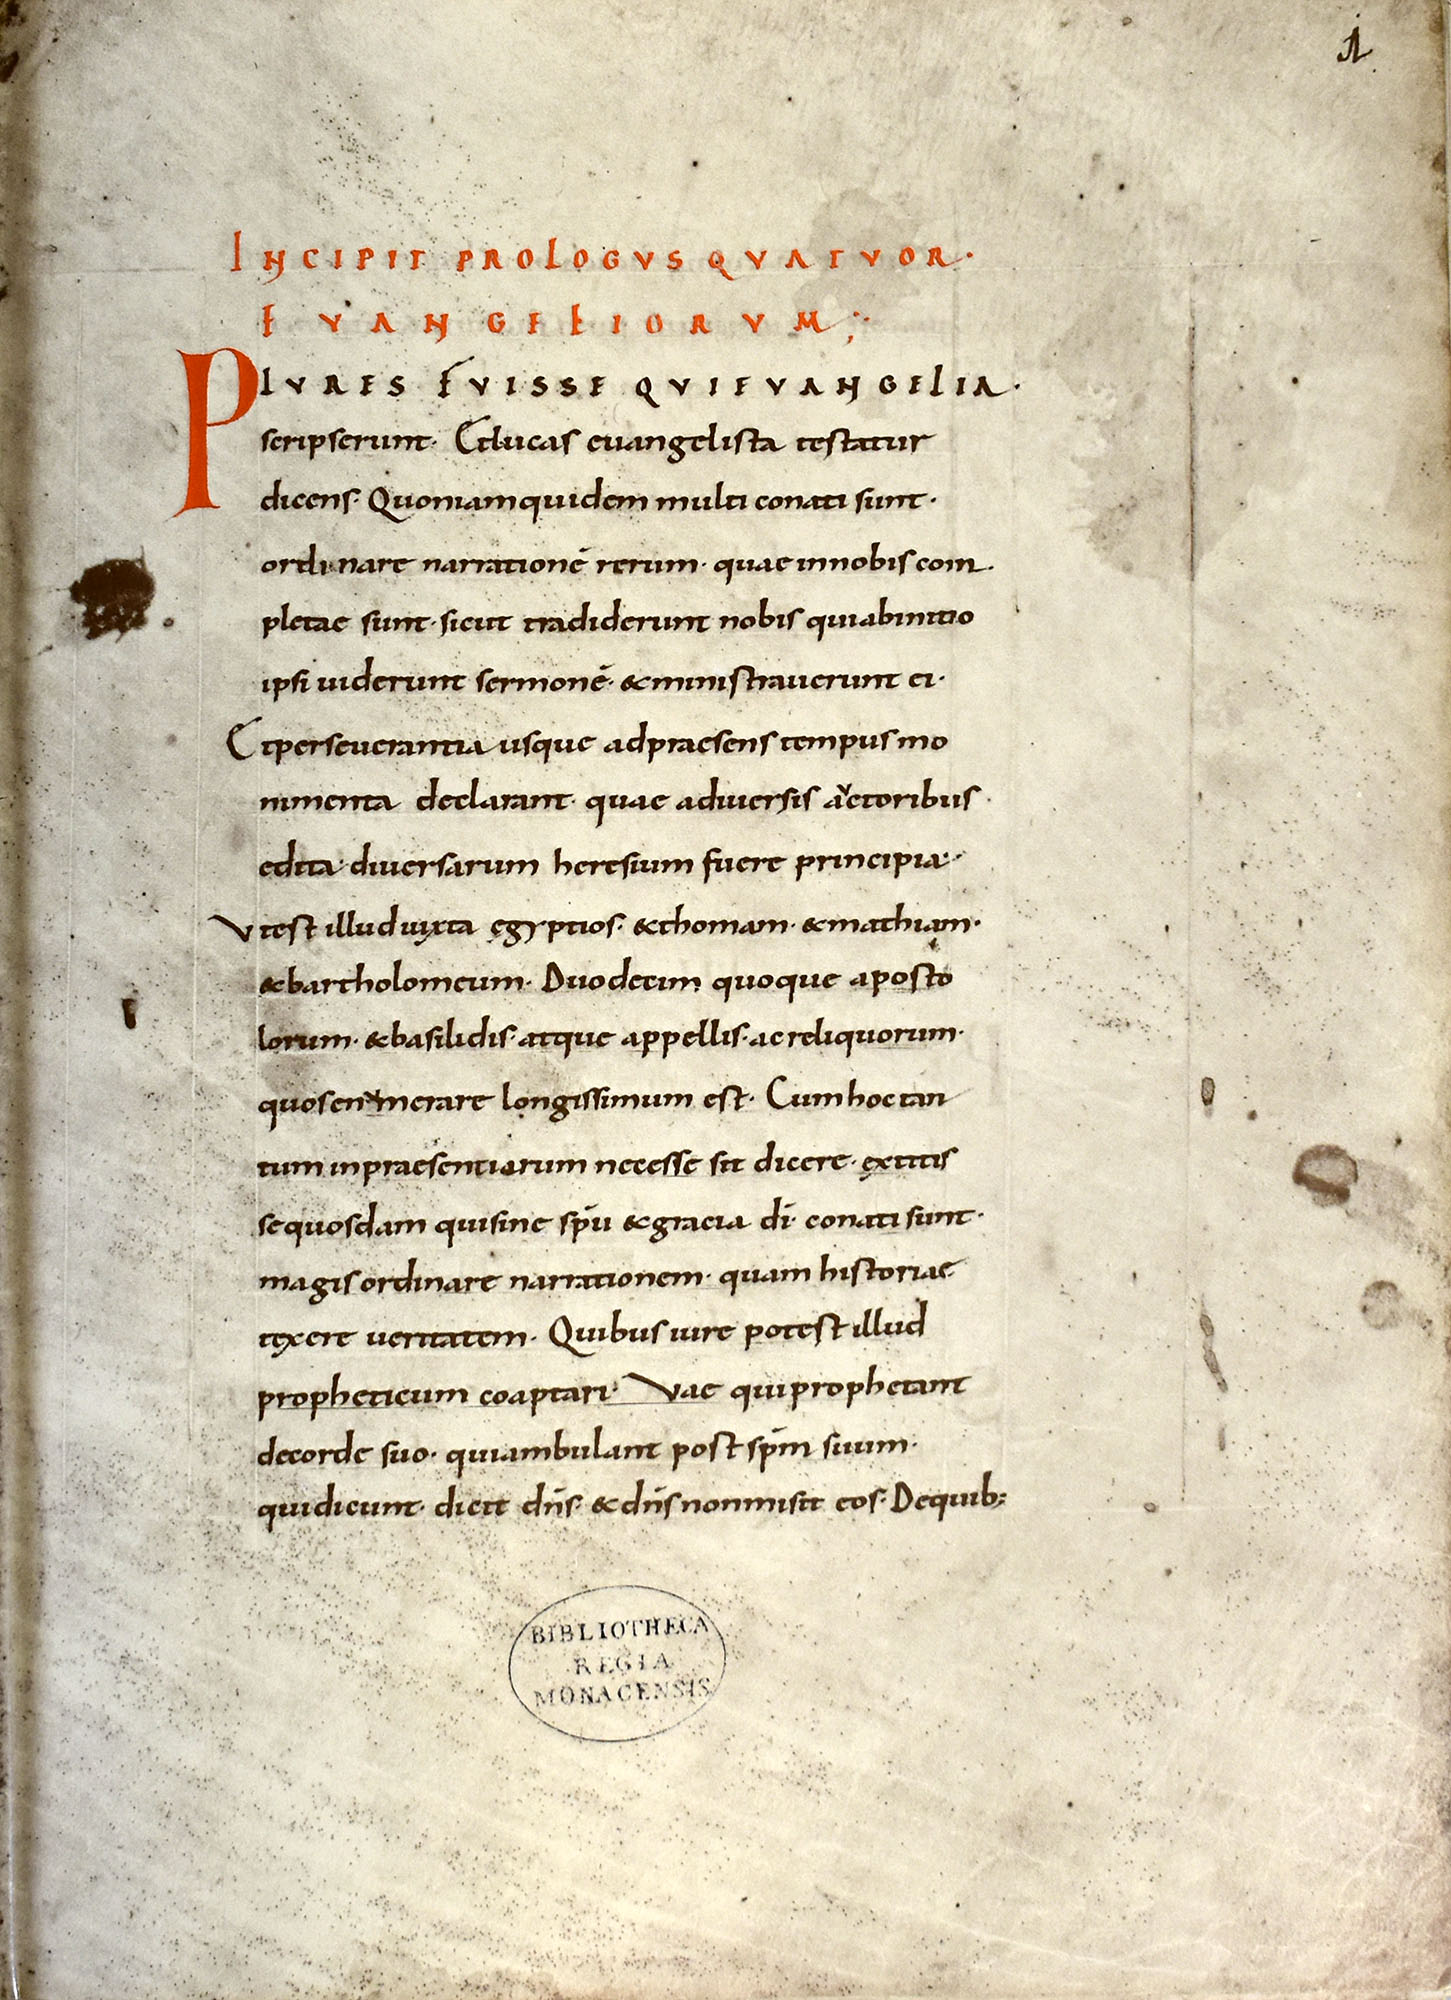 1
INCIPIT PROLOGUS QVATVOR·
EVANGELIORVM;
PLVRES FVISSE QVI EVANGELIA·
scripserunt· Et lucas euangelista testatur
dicens· Quoniam quidem multi conati sunt·
ordinare narrationē rerum· quae in nobis com
pletae sunt· sicut tradiderunt nobis qui ab initio
ipsi uiderunt sermonē· & ministrauerunt ei·
Et perseuerantia usque ad praesens tempus mo
nimenta declarant· quae a diuersis auctoribus
edita diuersarum heresium fuere principia·
Vt est illud iuxta ęgyptios· & thomam· & mathiam·
& bartholomeum· Duodecim quoque aposto
lorum· & basilidis· atque appellis· ac reliquorum·
quos enumerare longissimum est· Cum hoc tan
tum in praesentiarum necesse sit dicere· extitis
se quosdam qui sine sp̄u & gracia dī· conati sunt·
magis ordinare narrationem· quam historiae
texere ueritatem· Quibus iure potest illud
propheticum coaptari· Vae qui prophetant
de corde suo· qui ambulant post sp̄m suum·
qui dicunt· dicit dn̄s· & dn̄s non misit eos· De quib;
BIBLIOTHECA
REGIA
MONACENSIS